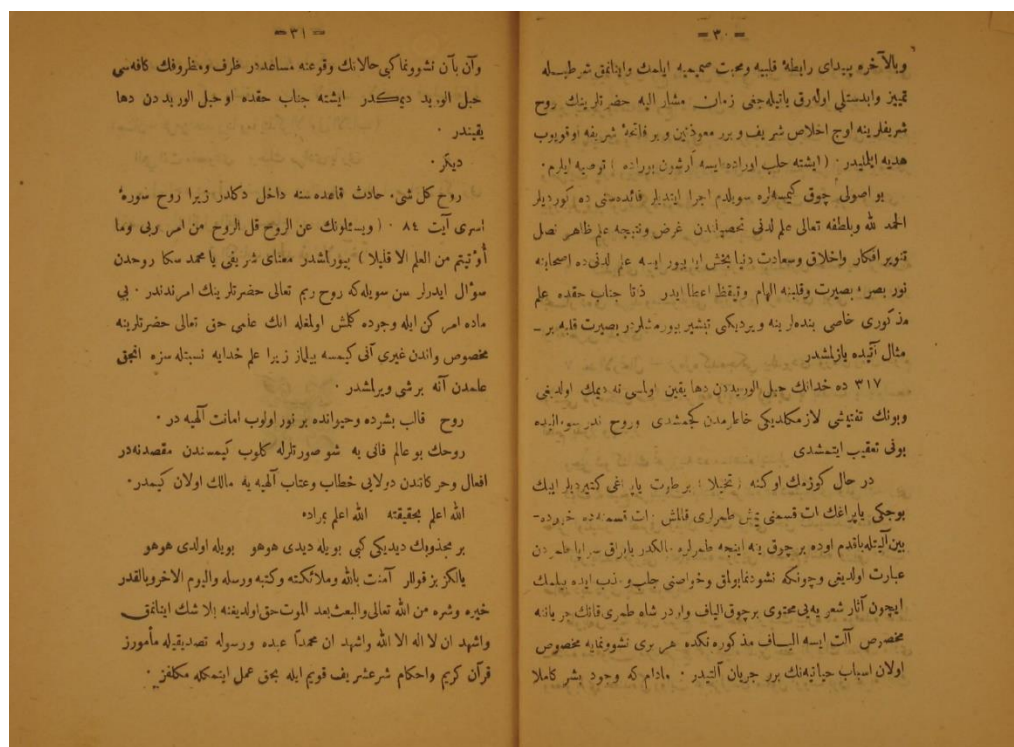 = ٣٠ =
وبالآخره پيدای رابطهٔ قلبيه ومحبت صميميه ايلمك واينانمق شرطيـله
تمييز وابدستلی اوله‌رق ياتيله‌جغی زمان مشار اليه حضرتلرينك روح
شريفلرينه اوچ اخلاص شريف و برر معوذتين و بر فاتحهٔ شريفه اوقويوب
هديه ايلمليدر · ( ايشته حلب اوراده ايسه آرشون بوراده ) توصيه ايلرم ·
بو اصولی چوق كيمسه‌لره سويلدم اجرا ايتديلر فائده‌سنی ده كورديلر
الحمد لله وبلطفه تعالی علم لدنی تحصيلندن غرض ونتيجه علم ظاهر نصل
تنوير افكار واخلاق وسعادت دنيا بخش ايدييور ايسه علم لدنی‌ده اصحابنه
نور بصر ، بصيرت وقلبنه الهام وتيقظ اعطا ايدر ذاتا جناب حقده علم
مذكوری خاصی بنده‌لرينه ويرديكی تبشير بيورمشلردر بصيرت قلبه بر ـ
مثال آتيده يازلمشدر
٣١٧ ده خدانك حبل الوريددن دها يقين اولمسی نه ديمك اولديغی
وبونك تفتيشی لازمكلديكی خاطرمدن كچمشدی وروح ندر سوءالیده
بونی تعقيب ايتمشدی
در حال كوزمك اوكنه ( تخيلا ) بر طوت ياپراغی كتيرديلر ايپك
بوجكی ياپراغك ات قسمنی يمش طمرلری قالمش ات قسمنده خرده‌ ـ
بين آلتيله باقدم اوده بر چوق ينه اينجه طمرلره مالكدر ياپراق سراپا طمردن
عبارت اولديغی وچونكه نشوونمابولمق وخواصنی جلب وجذب ايده بيلمك
ايچون آثار شعريه‌يی محتوی برچوق الياف واردر شاه طمری قانك جرياننه
مخصوص آلت ايسه اليـاف مذكوره نكده هر بری نشوونمايه مخصوص
اولان اسباب حياتيه‌نك برر جريان آلتيدر · مادام كه وجود بشر كاملا
= ٣١ =
وآن بآن نشوونما كبی حالانك وقوعنه مساعددر ظرف ومظروفك كافه‌سی
حبل الوريد ديمكدر ايشته جناب حقده او حبل الوريددن دها
يقيندر ·
ديكر ·
روح كل شیء حادث قاعده‌سنه داخل دكلدر زيرا روح سورهٔ
اسری آيت ٨٤ · ( ويسئلونك عن الروح قل الروح من امر ربی وما
أوتيتم من العلم الا قليلا ) بيورلمشدر معنای شريفی يا محمد سكا روحدن
سؤال ايدرلر سن سويله‌كه روح ربم تعالی حضرتلرينك امرندندر · بی
ماده امر كن ايله وجوده كلمش اولمغله انك علمی حق تعالی حضرتلرينه
مخصوص واندن غيری آنی كيمسه بيلمز زيرا علم خدايه نسبتله سزه انجق
علمدن آنه برشی ويرلمشدر ·
روح قالب بشرده وحيوانده بر نور اولوب امانت آلهيه در ·
روحك بو عالم فانی يه شو صورتلرله كلوب كيمسندن مقصدنه‌در
افعال وحركاتندن دولايی خطاب وعتاب آلهيه يه مالك اولان كيمدر ·
الله اعلم بحقيقته الله اعلم بمراده
بر مجذوبك ديديكی كبی بويله ديدی هوهو بويله اولدی هوهو
يالكز بز قوللر آمنت بالله وملائكته وكتبه ورسله واليوم الاخر وبالقدر
خيره وشره من الله تعالی والبعث بعد الموت حق اولديغنه بلا شك اينانمق
واشهد ان لا اله الا الله واشهد ان محمداً عبده ورسوله تصديقيله مأمورز
قرآن كريم واحكام شرع شريف قويم ايله بحق عمل ايتمكله مكلفز ·